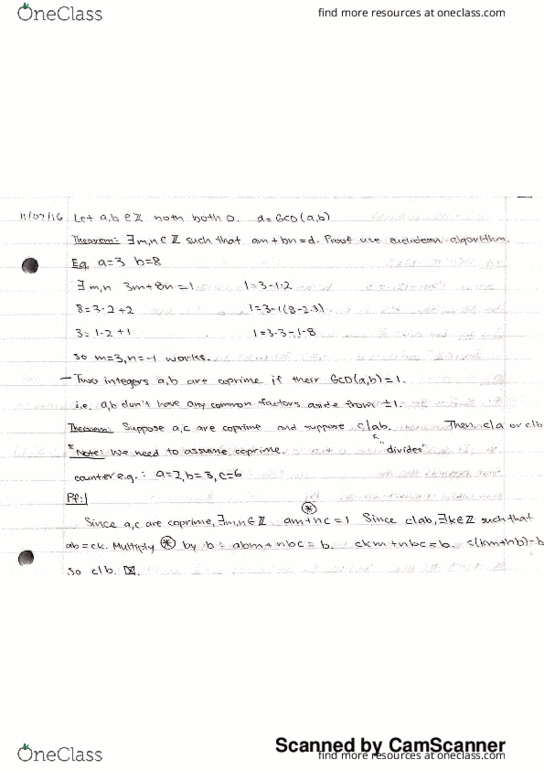 OneClass
find more resources at oneclass.com
11/07/16 Let a,b∈ℤ noth both 0. d=GCD(a,b)
Theorem: ∃m,n∈ℤ such that am+bn=d. Proof use euclidean algorithm.
Eg. a=3 b=8
∃m,n 3m+8n=1 1=3-1·2
8=3·2+2 1=3-1(8-2·3)
3=1·2+1 1=3·3-1·8
so m=3,n=-1 works.
- Two integers a,b are coprime if their GCD(a,b)=1.
i.e. a,b don't have any common factors aside from ±1.
Theorem: Suppose a,c are coprime and suppose c|ab. Then c|a or c|b
* Note: We need to assume coprime. "divides"
counter e.g.: a=2, b=3, c=6
Pf:|
Since a,c are coprime, ∃m,n∈ℤ am+nc=1 ⊛ Since c|ab, ∃k∈ℤ such that
ab=ck. Multiply ⊛ by b: abm+nbc=b. ckm+nbc=b. c(km+nb)=b
so c|b. ☒.
Scanned by CamScanner
OneClass
find more resources at oneclass.com